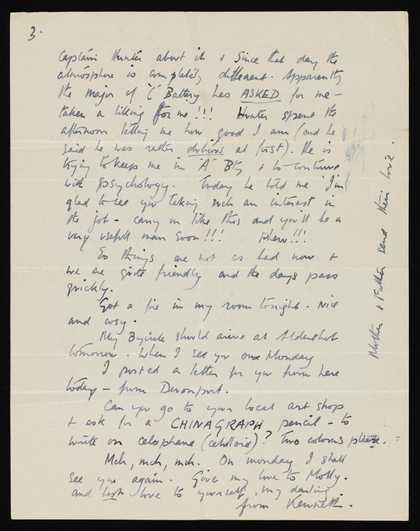 3.
Captain Hunter about it & Since that day the
atmosphere is completely different. Apparently
the major of 'C' Battery has ASKED for me –
taken a liking for me!!! Hunter spent the
afternoon telling me how good I am (and he
said he was rather dubious at first). He is
trying to keep me in 'A' Bty & to continue
with psychology. Today he told me "I'm
glad to see you taking such an interest in
the job – carry on like this and you'll be a
very useful man soon!!! Phew!!!
So things are not so bad now &
we are quite friendly and the days pass
quickly.
Got a fire in my room tonight. Nice
and cosy.
My Bycicle should arrive at Aldershot
tomorrow. When I see you on Monday
I posted a letter for you from here
today – from Devonport.
Can you go to your local art shop
& ask for a CHINAGRAPH pencil – to
write on celophane (celuloid)? Two colours please.
Mch, mch, mch. On monday I shall
see you again. Give my love to Molly.
and love to yourself, my darling
from Kenneth.
Mother & Father send their love.